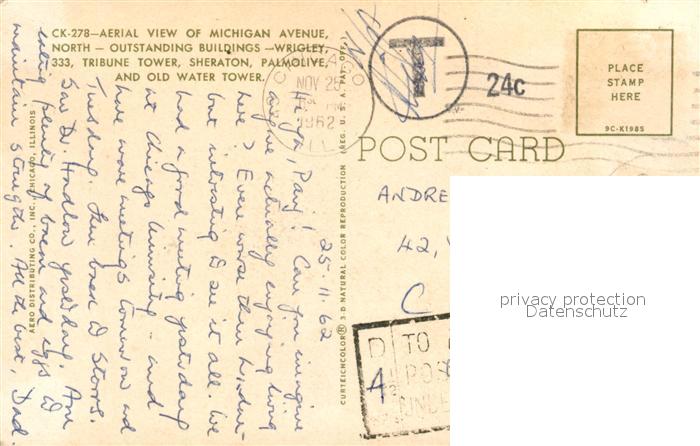 CK-278—AERIAL VIEW OF MICHIGAN AVENUE,
NORTH — OUTSTANDING BUILDINGS —WRIGLEY,
333, TRIBUNE TOWER, SHERATON, PALMOLIVE,
AND OLD WATER TOWER.
NOV 25
1962
T
24c
PLACE
STAMP
HERE
9C-K1985
POST CARD
AERO DISTRIBUTING CO., INC., CHICAGO, ILLINOIS
CURTEICHCOLOR® 3-D NATURAL COLOR REPRODUCTION (REG. U. S. A. PAT. OFF.)
25-11-62
Can you imagine
anyone actually enjoying living
here? Even worse than London—
but interesting to see it all. We
had a good meeting yesterday
at Chicago University — and
have more meetings tomorrow and
Tuesday. Then back to Storrs.
Saw Dr. yesterday. Am
eating plenty of bacon and eggs to
maintain strength. All the best, Dad.
ANDRE
42,
C
D
4
TO
PO
UNDE
privacy protection
Datenschutz